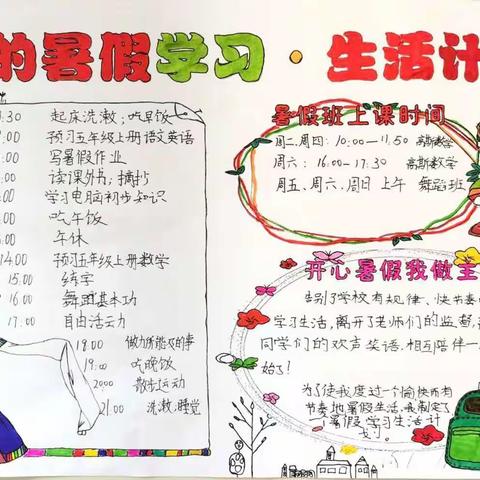 的暑假学习·生活计
:30 起床洗漱;吃早饭
:00 预习五年级上册语文英语
:00 写暑假作业
:00 读课外书;摘抄
:00 学习电脑初步知识
:00 吃午饭
:00 午休
14.00 预习五年级上册数学
15.00 练字
16.00 舞蹈基本功
17.00 自由活动
18.00 做力所能及的事
19:00 吃晚饭
20:00 散步运动
21.00 洗漱;睡觉
暑假班上课时间
周二、周四:10:00—11:50 高斯数学
周六:16:00-17:30 高斯数学
周五、周六、周日上午 舞蹈班
开心暑假我做主
告别了学校有规律、快节奏的
学习生活,离开了老师们的监督,
同学们的欢声笑语.相互陪伴一
始了!
为了使我度过一个愉快而有
节奏地暑假生活,我制定了
一暑假学习生活计
划。